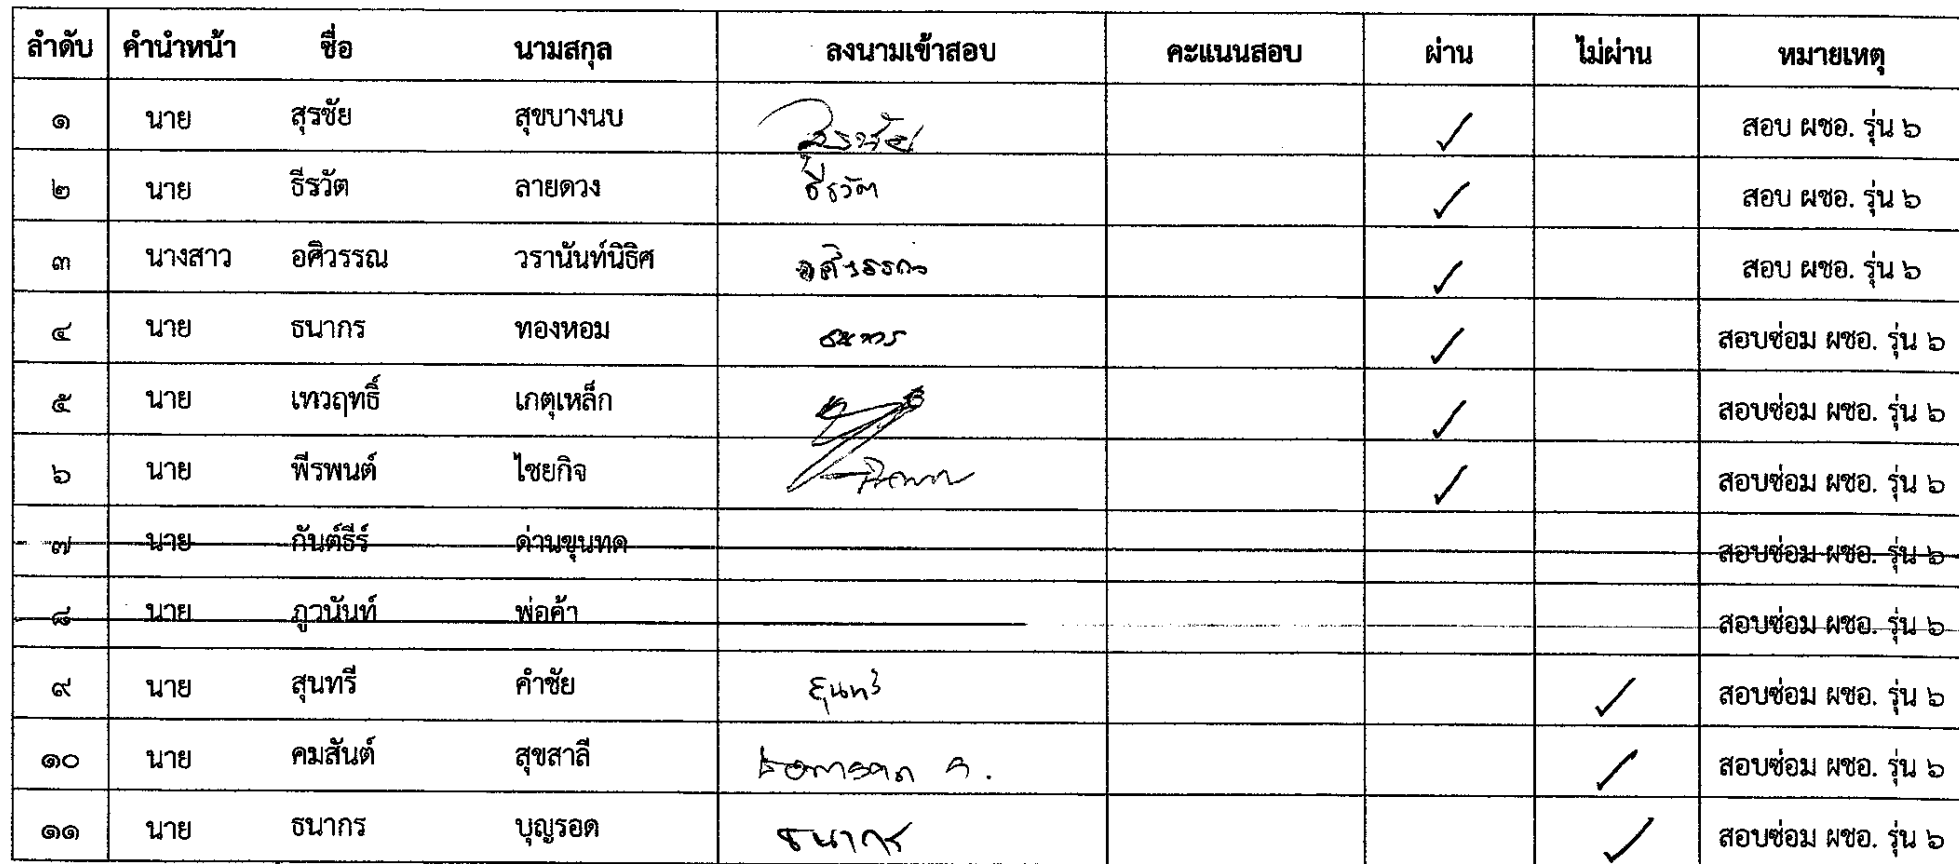 ลำดับ คำนำหน้า ชื่อ นามสกุล ลงนามเข้าสอบ คะแนนสอบ ผ่าน ไม่ผ่าน หมายเหตุ
๑ นาย สุรชัย สุขบางนบ สุรชัย ✓ สอบ ผชอ. รุ่น ๖
๒ นาย ธีรวัต ลายดวง ธีรวัต ✓ สอบ ผชอ. รุ่น ๖
๓ นางสาว อศิวรรณ วรานันท์นิธิศ อศิวรรณ ✓ สอบ ผชอ. รุ่น ๖
๔ นาย ธนากร ทองหอม ธนากร ✓ สอบซ่อม ผชอ. รุ่น ๖
๕ นาย เทวฤทธิ์ เกตุเหล็ก ✓ สอบซ่อม ผชอ. รุ่น ๖
๖ นาย พีรพนต์ ไชยกิจ ✓ สอบซ่อม ผชอ. รุ่น ๖
๗ นาย กันต์ธีร์ ด่านขุนทด สอบซ่อม ผชอ. รุ่น ๖
๘ นาย ภูวนันท์ พ่อค้า สอบซ่อม ผชอ. รุ่น ๖
๙ นาย สุนทรี คำชัย สุนทรี ✓ สอบซ่อม ผชอ. รุ่น ๖
๑๐ นาย คมสันต์ สุขสาลี ✓ สอบซ่อม ผชอ. รุ่น ๖
๑๑ นาย ธนากร บุญรอด ธนากร ✓ สอบซ่อม ผชอ. รุ่น ๖